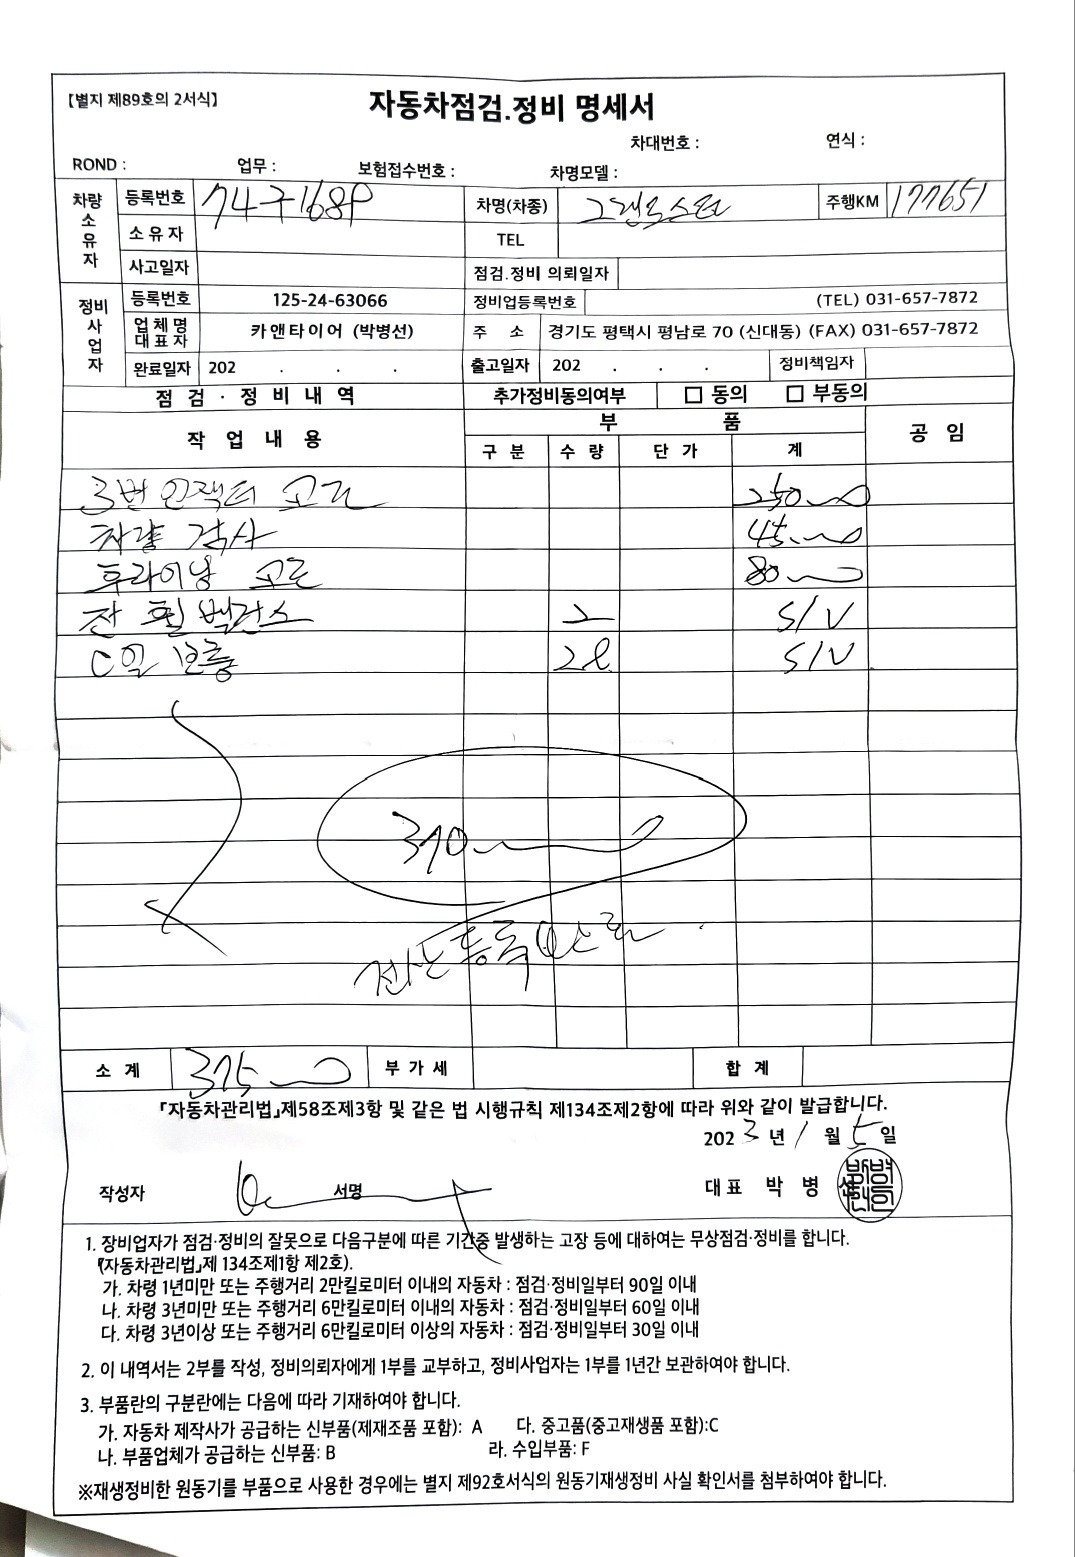 【별지 제89호의 2서식】
자동차점검.정비 명세서
차대번호 : 연식 :
ROND : 업무 : 보험접수번호 : 차명모델 :
차량소유자 등록번호 74구1689 차명(차종) 그랜드스타렉스 주행KM 177651
소유자 TEL
사고일자 점검.정비 의뢰일자
정비사업자 등록번호 125-24-63066 정비업등록번호 (TEL) 031-657-7872
업체명 대표자 카앤타이어 (박병선) 주 소 경기도 평택시 평남로 70 (신대동) (FAX) 031-657-7872
완료일자 202 . . . 출고일자 202 . . . 정비책임자
점 검 · 정 비 내 역 추가정비동의여부 □ 동의 □ 부동의
작 업 내 용 부 품 공 임
구 분 수 량 단 가 계
3번 인젝터 교환 250
차량 검사 45
후라이닝 교환 80
휠 2 S/V
C일 보충 2ℓ S/V
370
소 계 375 부 가 세 합 계
「자동차관리법」제58조제3항 및 같은 법 시행규칙 제134조제2항에 따라 위와 같이 발급합니다.
2023 년 1 월 5 일
작성자 서명 대표 박 병 선
1. 장비업자가 점검·정비의 잘못으로 다음구분에 따른 기간중 발생하는 고장 등에 대하여는 무상점검·정비를 합니다.
「자동차관리법」제 134조제1항 제2호).
가. 차령 1년미만 또는 주행거리 2만킬로미터 이내의 자동차 : 점검·정비일부터 90일 이내
나. 차령 3년미만 또는 주행거리 6만킬로미터 이내의 자동차 : 점검·정비일부터 60일 이내
다. 차령 3년이상 또는 주행거리 6만킬로미터 이상의 자동차 : 점검·정비일부터 30일 이내
2. 이 내역서는 2부를 작성, 정비의뢰자에게 1부를 교부하고, 정비사업자는 1부를 1년간 보관하여야 합니다.
3. 부품란의 구분란에는 다음에 따라 기재하여야 합니다.
가. 자동차 제작사가 공급하는 신부품(제재조품 포함): A 다. 중고품(중고재생품 포함):C
나. 부품업체가 공급하는 신부품: B 라. 수입부품: F
※재생정비한 원동기를 부품으로 사용한 경우에는 별지 제92호서식의 원동기재생정비 사실 확인서를 첨부하여야 합니다.